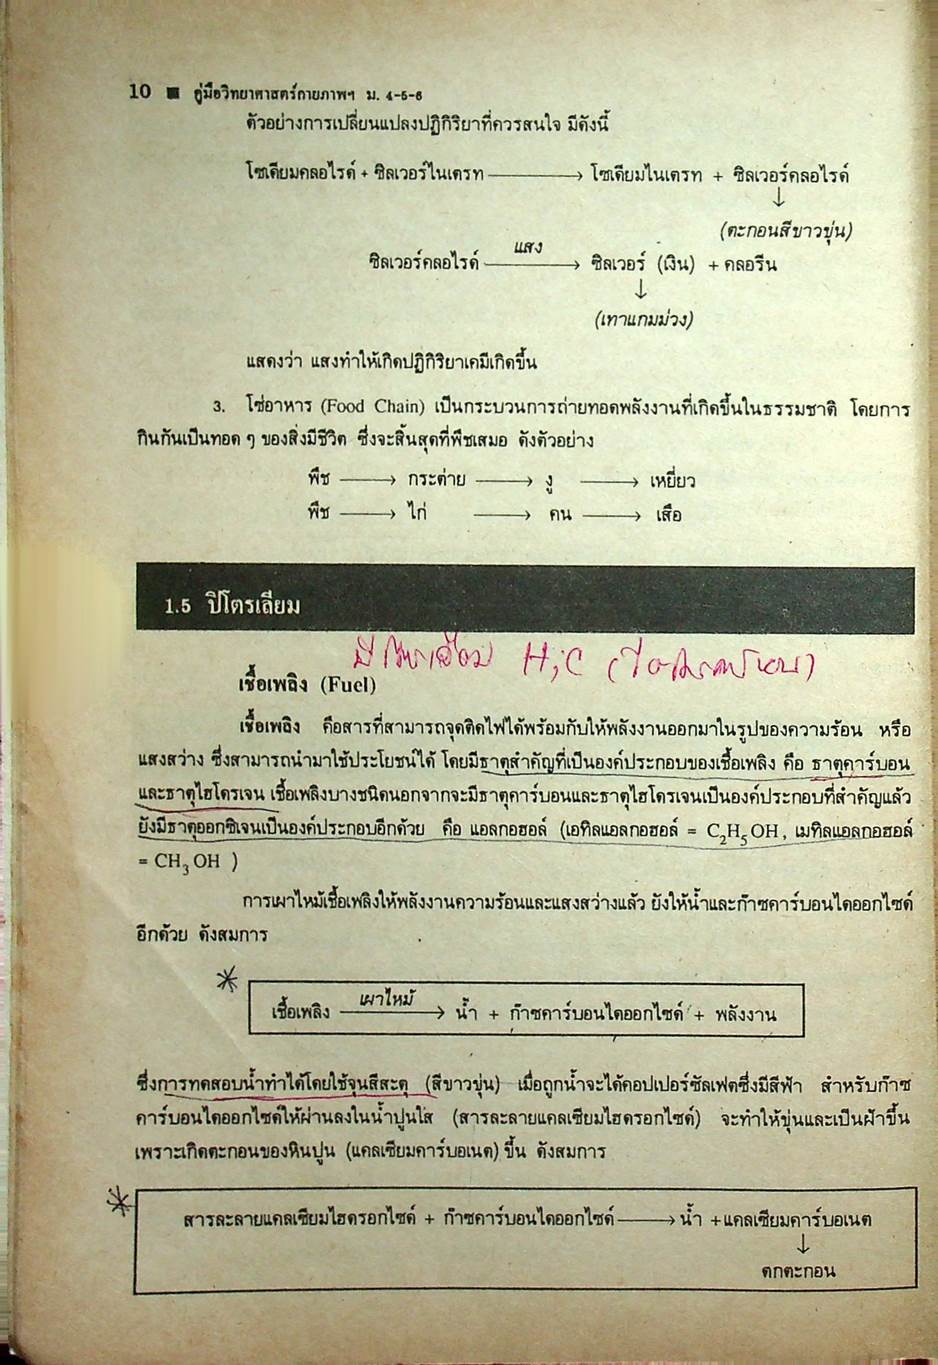 10 ■ คู่มือวิทยาศาสตร์กายภาพฯ ม. 4-5-6
ตัวอย่างการเปลี่ยนแปลงปฏิกิริยาที่ควรสนใจ มีดังนี้
โซเดียมคลอไรด์ + ซิลเวอร์ไนเตรท ⟶ โซเดียมไนเตรท + ซิลเวอร์คลอไรด์
↓
(ตะกอนสีขาวขุ่น)
แสง
ซิลเวอร์คลอไรด์ ⟶ ซิลเวอร์ (เงิน) + คลอรีน
↓
(เทาแกมม่วง)
แสดงว่า แสงทำให้เกิดปฏิกิริยาเคมีเกิดขึ้น
3. โซ่อาหาร (Food Chain) เป็นกระบวนการถ่ายทอดพลังงานที่เกิดขึ้นในธรรมชาติ โดยการ
กินกันเป็นทอด ๆ ของสิ่งมีชีวิต ซึ่งจะสิ้นสุดที่พืชเสมอ ดังตัวอย่าง
พืช ⟶ กระต่าย ⟶ งู ⟶ เหยี่ยว
พืช ⟶ ไก่ ⟶ คน ⟶ เสือ
1.5 ปิโตรเลียม
มี H, C
เชื้อเพลิง (Fuel)
เชื้อเพลิง คือสารที่สามารถจุดติดไฟได้พร้อมกับให้พลังงานออกมาในรูปของความร้อน หรือ
แสงสว่าง ซึ่งสามารถนำมาใช้ประโยชน์ได้ โดยมีธาตุสำคัญที่เป็นองค์ประกอบของเชื้อเพลิง คือ ธาตุคาร์บอน
และธาตุไฮโดรเจน เชื้อเพลิงบางชนิดนอกจากจะมีธาตุคาร์บอนและธาตุไฮโดรเจนเป็นองค์ประกอบที่สำคัญแล้ว
ยังมีธาตุออกซิเจนเป็นองค์ประกอบอีกด้วย คือ แอลกอฮอล์ (เอทิลแอลกอฮอล์ = C₂H₅OH, เมทิลแอลกอฮอล์
= CH₃OH )
การเผาไหม้เชื้อเพลิงให้พลังงานความร้อนและแสงสว่างแล้ว ยังให้น้ำและก๊าซคาร์บอนไดออกไซด์
อีกด้วย ดังสมการ
เผาไหม้
เชื้อเพลิง ⟶ น้ำ + ก๊าซคาร์บอนไดออกไซด์ + พลังงาน
ซึ่งการทดสอบน้ำทำได้โดยใช้จุนสีสะตุ (สีขาวขุ่น) เมื่อถูกน้ำจะได้คอปเปอร์ซัลเฟตซึ่งมีสีฟ้า สำหรับก๊าซ
คาร์บอนไดออกไซด์ให้ผ่านลงในน้ำปูนใส (สารละลายแคลเซียมไฮดรอกไซด์) จะทำให้ขุ่นและเป็นฝ้าขึ้น
เพราะเกิดตะกอนของหินปูน (แคลเซียมคาร์บอเนต) ขึ้น ดังสมการ
สารละลายแคลเซียมไฮดรอกไซด์ + ก๊าซคาร์บอนไดออกไซด์ ⟶ น้ำ + แคลเซียมคาร์บอเนต
↓
ตกตะกอน